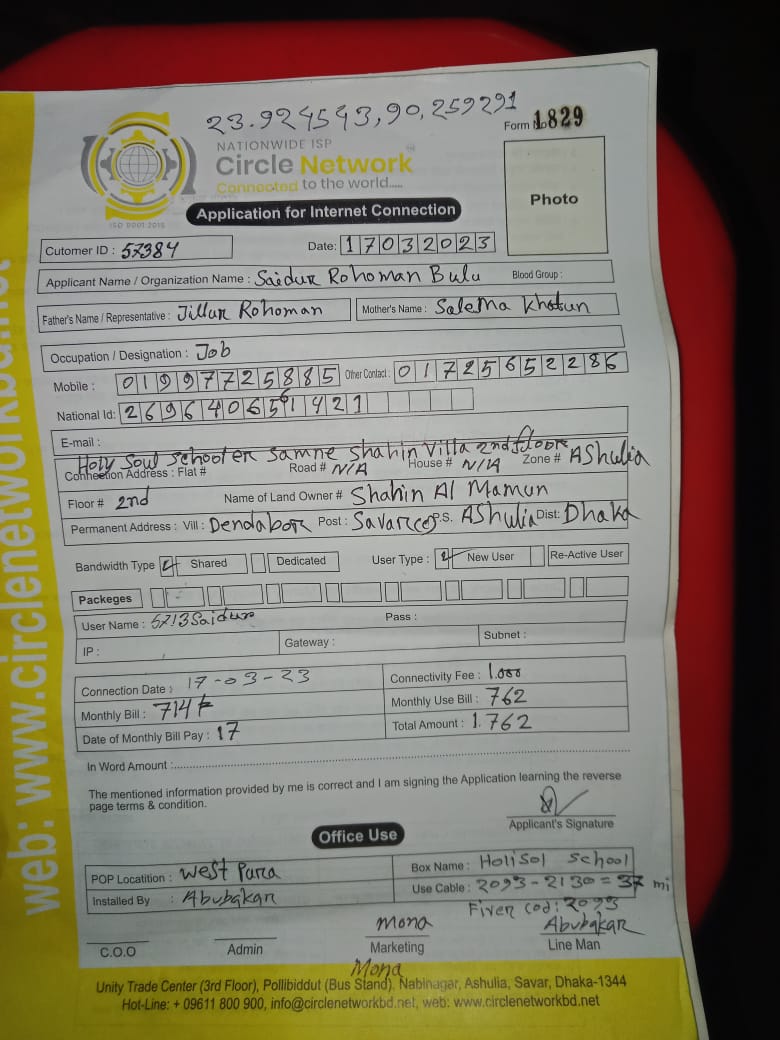 23.924543,90.259291
Form No 1829
NATIONWIDE ISP
Circle Network
Connected to the world.....
ISO 9001 2015
Application for Internet Connection
Photo
Cutomer ID : 57384
Date: 17032023
Applicant Name / Organization Name : Saidur Rohoman Bulu Blood Group :
Father's Name / Representative : Jillur Rohoman Mother's Name : Salema Khatun
Occupation / Designation : Job
Mobile : 01997725885 Other Contact : 01725652286
National Id: 2696406561421
E-mail :
Holy Soul Schooler Samne Shahin Villa 2nd floor
Connection Address : Flat # Road # N/A House # N/A Zone # AShulia
Floor # 2nd Name of Land Owner # Shahin Al Mamun
Permanent Address : Vill : Dendabor Post : Savar P.S. AShulia Dist: Dhaka
Bandwidth Type Shared Dedicated User Type : New User Re-Active User
Packeges
User Name : 5713Saidur Pass :
IP : Gateway : Subnet :
Connection Date : 17-03-23 Connectivity Fee : 1.000
Monthly Bill : 714 Monthly Use Bill : 762
Date of Monthly Bill Pay : 17 Total Amount : 1.762
In Word Amount :
The mentioned information provided by me is correct and I am signing the Application learning the reverse
page terms & condition.
Applicant's Signature
Office Use
POP Locatition : West Para Box Name : Holisol School
Installed By : Abubakar Use Cable : 2093-2130=37 mi
Fiver cod: 2093
Mona Abubakar
C.O.O Admin Marketing Line Man
Mona
Unity Trade Center (3rd Floor), Pollibiddut (Bus Stand), Nabinagar, Ashulia, Savar, Dhaka-1344
Hot-Line: + 09611 800 900, info@circlenetworkbd.net, web: www.circlenetworkbd.net
web: www.circlenetworkbd.net